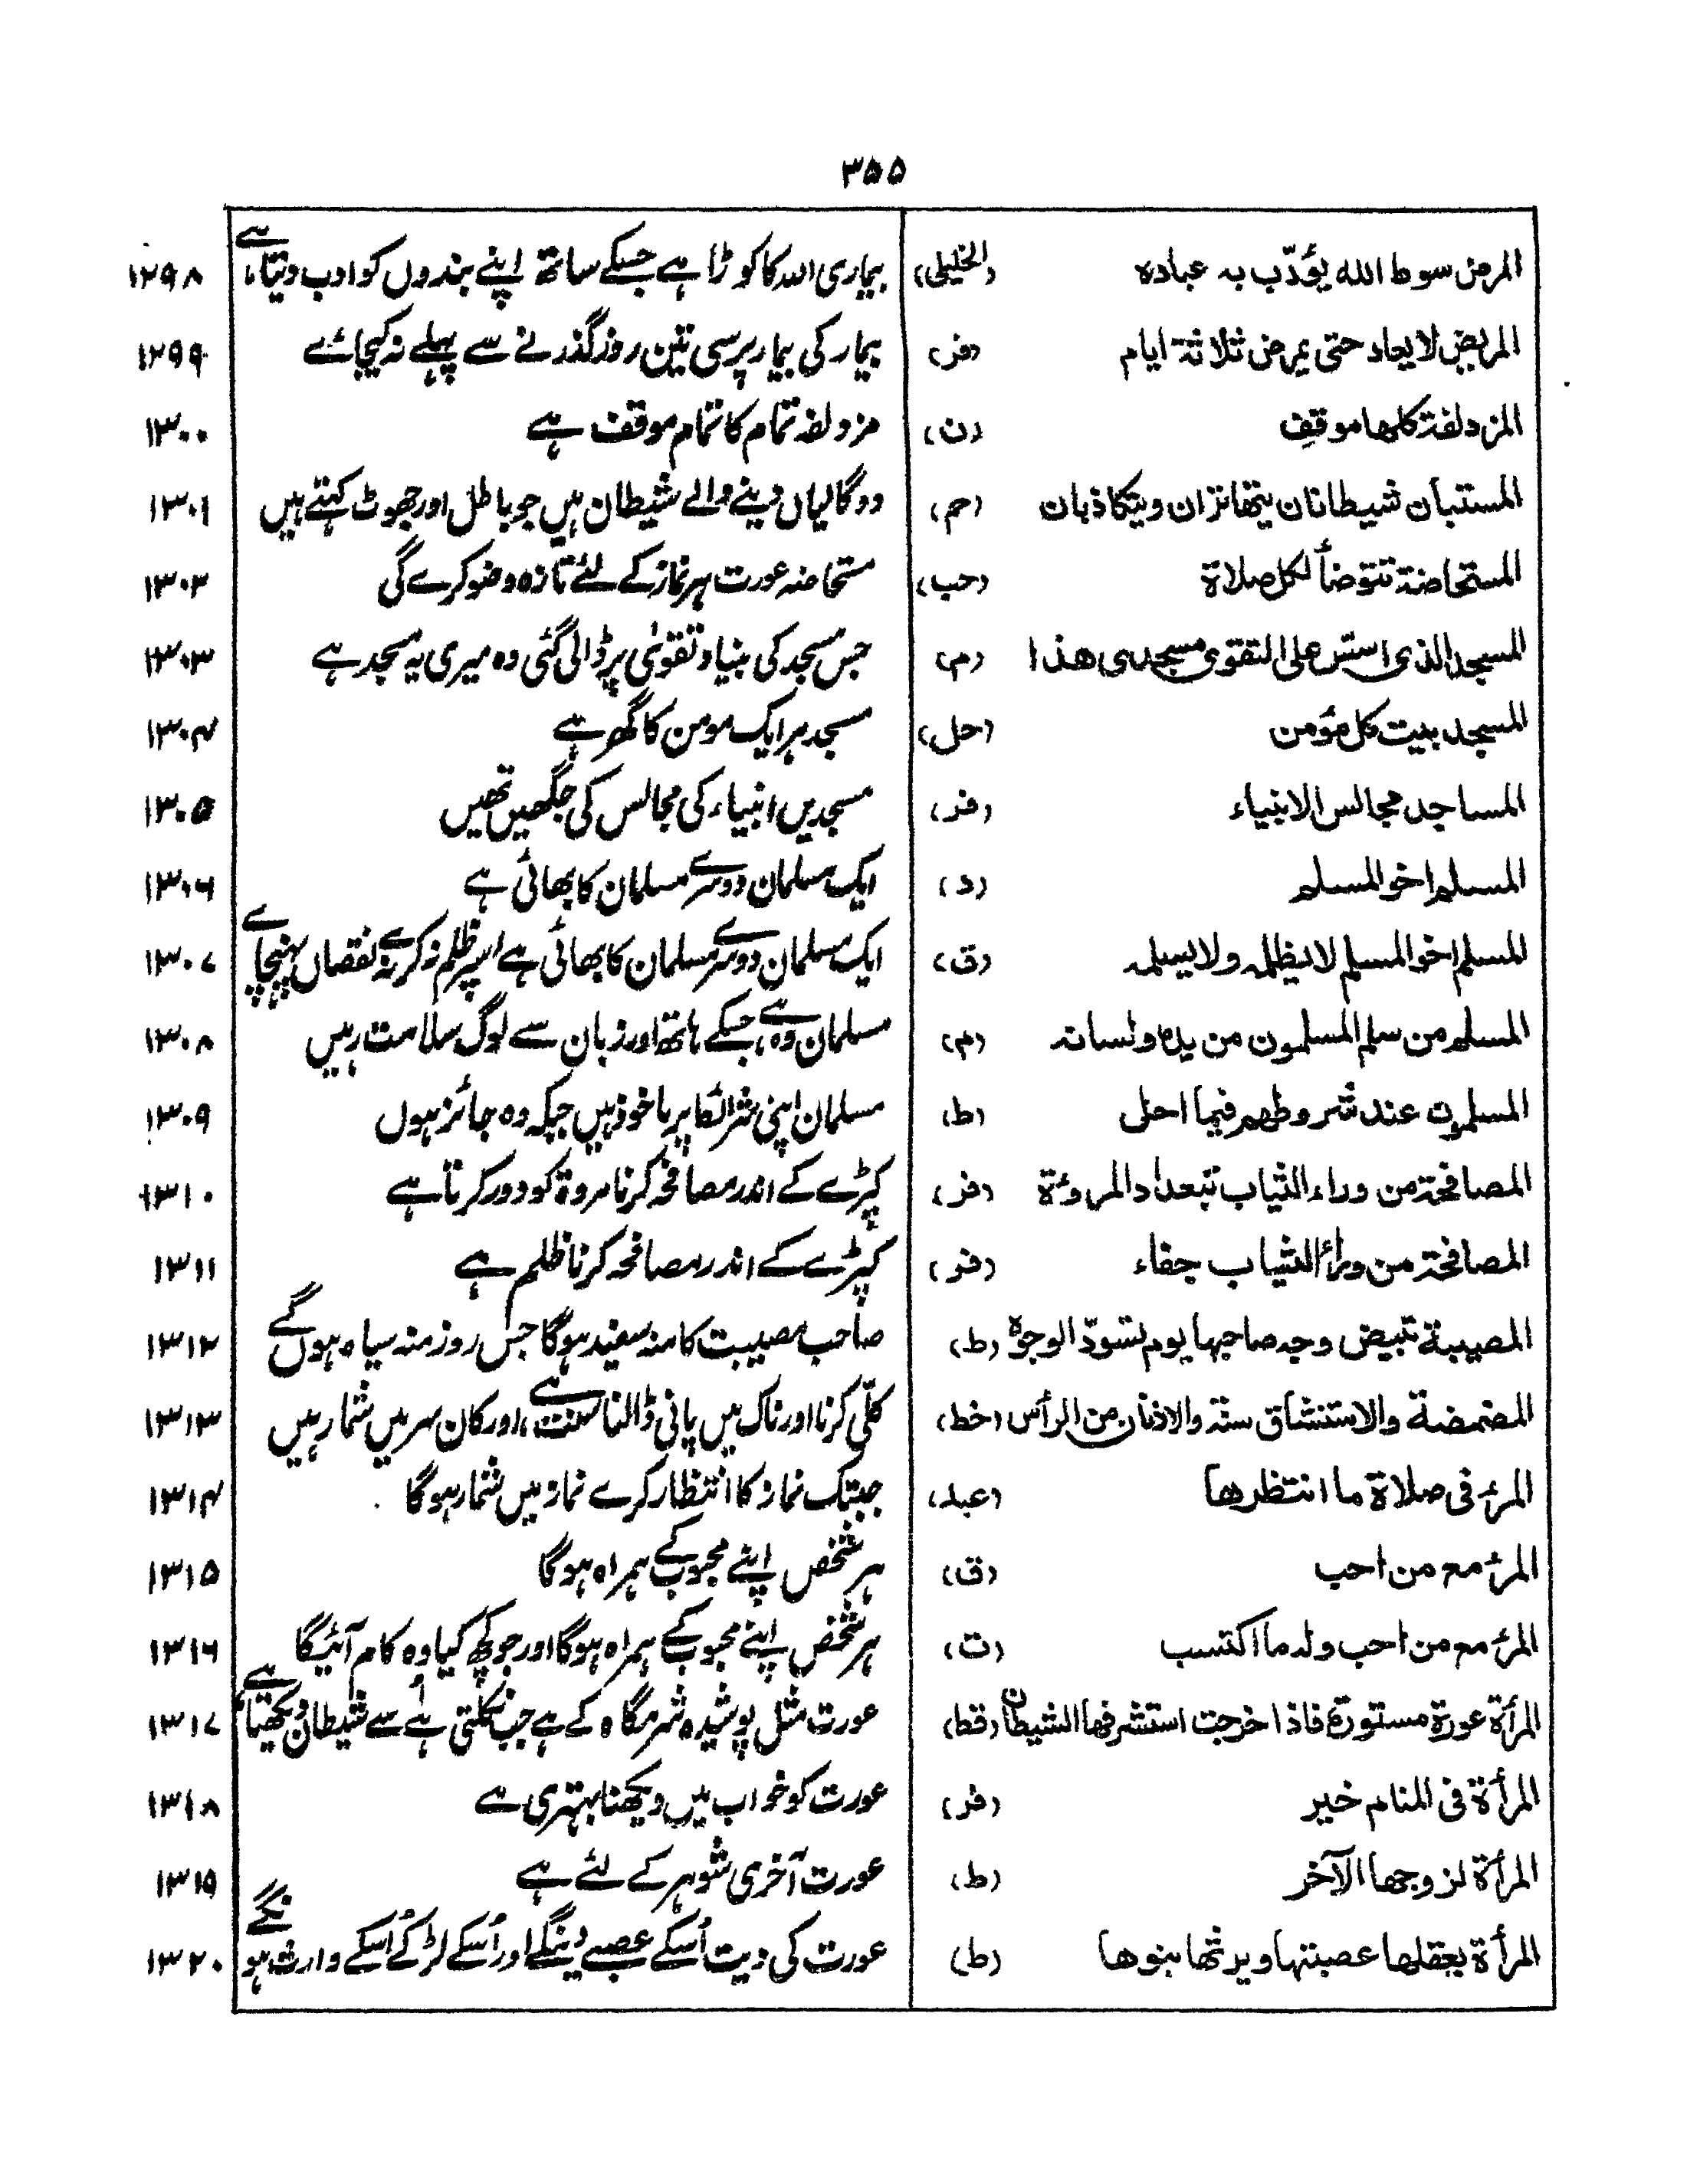 ۳۵۵
المرض سوط الله یؤدّب به عباده (الخلیلی) بیماری اللہ کا کوڑا ہے جسکے ساتھ اپنے بندوں کو ادب دیتا ہے ۱۲۹۸
المریض لا یعاد حتی یمرض ثلاثة ایام (فر) بیمار کی بیمار پرسی تین روز گذرنے سے پہلے نہ کیجائے ۱۲۹۹
المزدلفة کلها موقف (ن) مزدلفہ تمام کا تمام موقف ہے ۱۳۰۰
المستبان شیطانان یتهاتران ویتکاذبان (حم) دو گالیاں دینے والے شیطان ہیں جو باطل اور جھوٹ کہتے ہیں ۱۳۰۱
المستحاضة تتوضأ لکل صلاة (حب) مستحاضہ عورت ہر نماز کے لئے تازہ وضو کرے گی ۱۳۰۲
المسجد الذی اسّس علی التقوی مسجدی هذا (م) جس مسجد کی بنیاد تقویٰ پر ڈالی گئی وہ میری یہ مسجد ہے ۱۳۰۳
المسجد بیت کل مؤمن (حل) مسجد ہر ایک مومن کا گھر ہے ۱۳۰۴
المساجد مجالس الانبیاء (فر) مسجدیں انبیاء کی مجالس کی جگھیں تھیں ۱۳۰۵
المسلم اخو المسلم (د) ایک مسلمان دوسرے مسلمان کا بھائی ہے ۱۳۰۶
المسلم اخو المسلم لا یظلمه ولا یسلمه (ق) ایک مسلمان دوسرے مسلمان کا بھائی ہے اسپر ظلم نہ کرے نہ نقصان پہنچائے ۱۳۰۷
المسلم من سلم المسلمون من یده ولسانه (م) مسلمان وہ ہے جسکے ہاتھ اور زبان سے لوگ سلامت رہیں ۱۳۰۸
المسلمون عند شروطهم فیما احل (ط) مسلمان اپنی شرائط پر ماخوذ ہیں جبکہ وہ جائز ہوں ۱۳۰۹
المصافحة من وراء الثیاب تبعد المروءة (فر) کپڑے کے اندر مصافحہ کرنا مروۃ کو دور کرتا ہے ۱۳۱۰
المصافحة من وراء الثیاب جفاء (فر) کپڑے کے اندر مصافحہ کرنا ظلم ہے ۱۳۱۱
المصیبة تبیض وجه صاحبها یوم تسودّ الوجوه (ط) صاحب مصیبت کا منہ سفید ہوگا جس روز منہ سیاہ ہوں گے ۱۳۱۲
المضمضة والاستنشاق سنة والاذنان من الرأس (خط) کلّی کرنا اور ناک میں پانی ڈالنا سنت ہے، اور کان سر میں شمار ہیں ۱۳۱۳
المرء فی صلاة ما انتظرها (عبد) جبتک نماز کا انتظار کرے نماز میں شمار ہوگا ۱۳۱۴
المرء مع من احب (ق) ہر شخص اپنے محبوب کے ہمراہ ہوگا ۱۳۱۵
المرء مع من احب وله ما اکتسب (ت) ہر شخص اپنے محبوب کے ہمراہ ہوگا اور جو کچھ کیا وہ کام آئیگا ۱۳۱۶
المرأة عورة مستورة فاذا خرجت استشرفها الشیطان (قط) عورت مثل پوشیدہ شرمگاہ کے ہے جب نکلتی ہے اُسے شیطان دیکھتا ہے ۱۳۱۷
المرأة فی المنام خیر (فر) عورت کو خواب میں دیکھنا بہتری ہے ۱۳۱۸
المرأة لزوجها الآخر (ط) عورت آخری شوہر کے لئے ہے ۱۳۱۹
المرأة یعقلها عصبتها ویرثها بنوها (ط) عورت کی دیت اُسکے عصبے دینگے اور اُسکے لڑکے اُسکے وارث ہونگے ۱۳۲۰